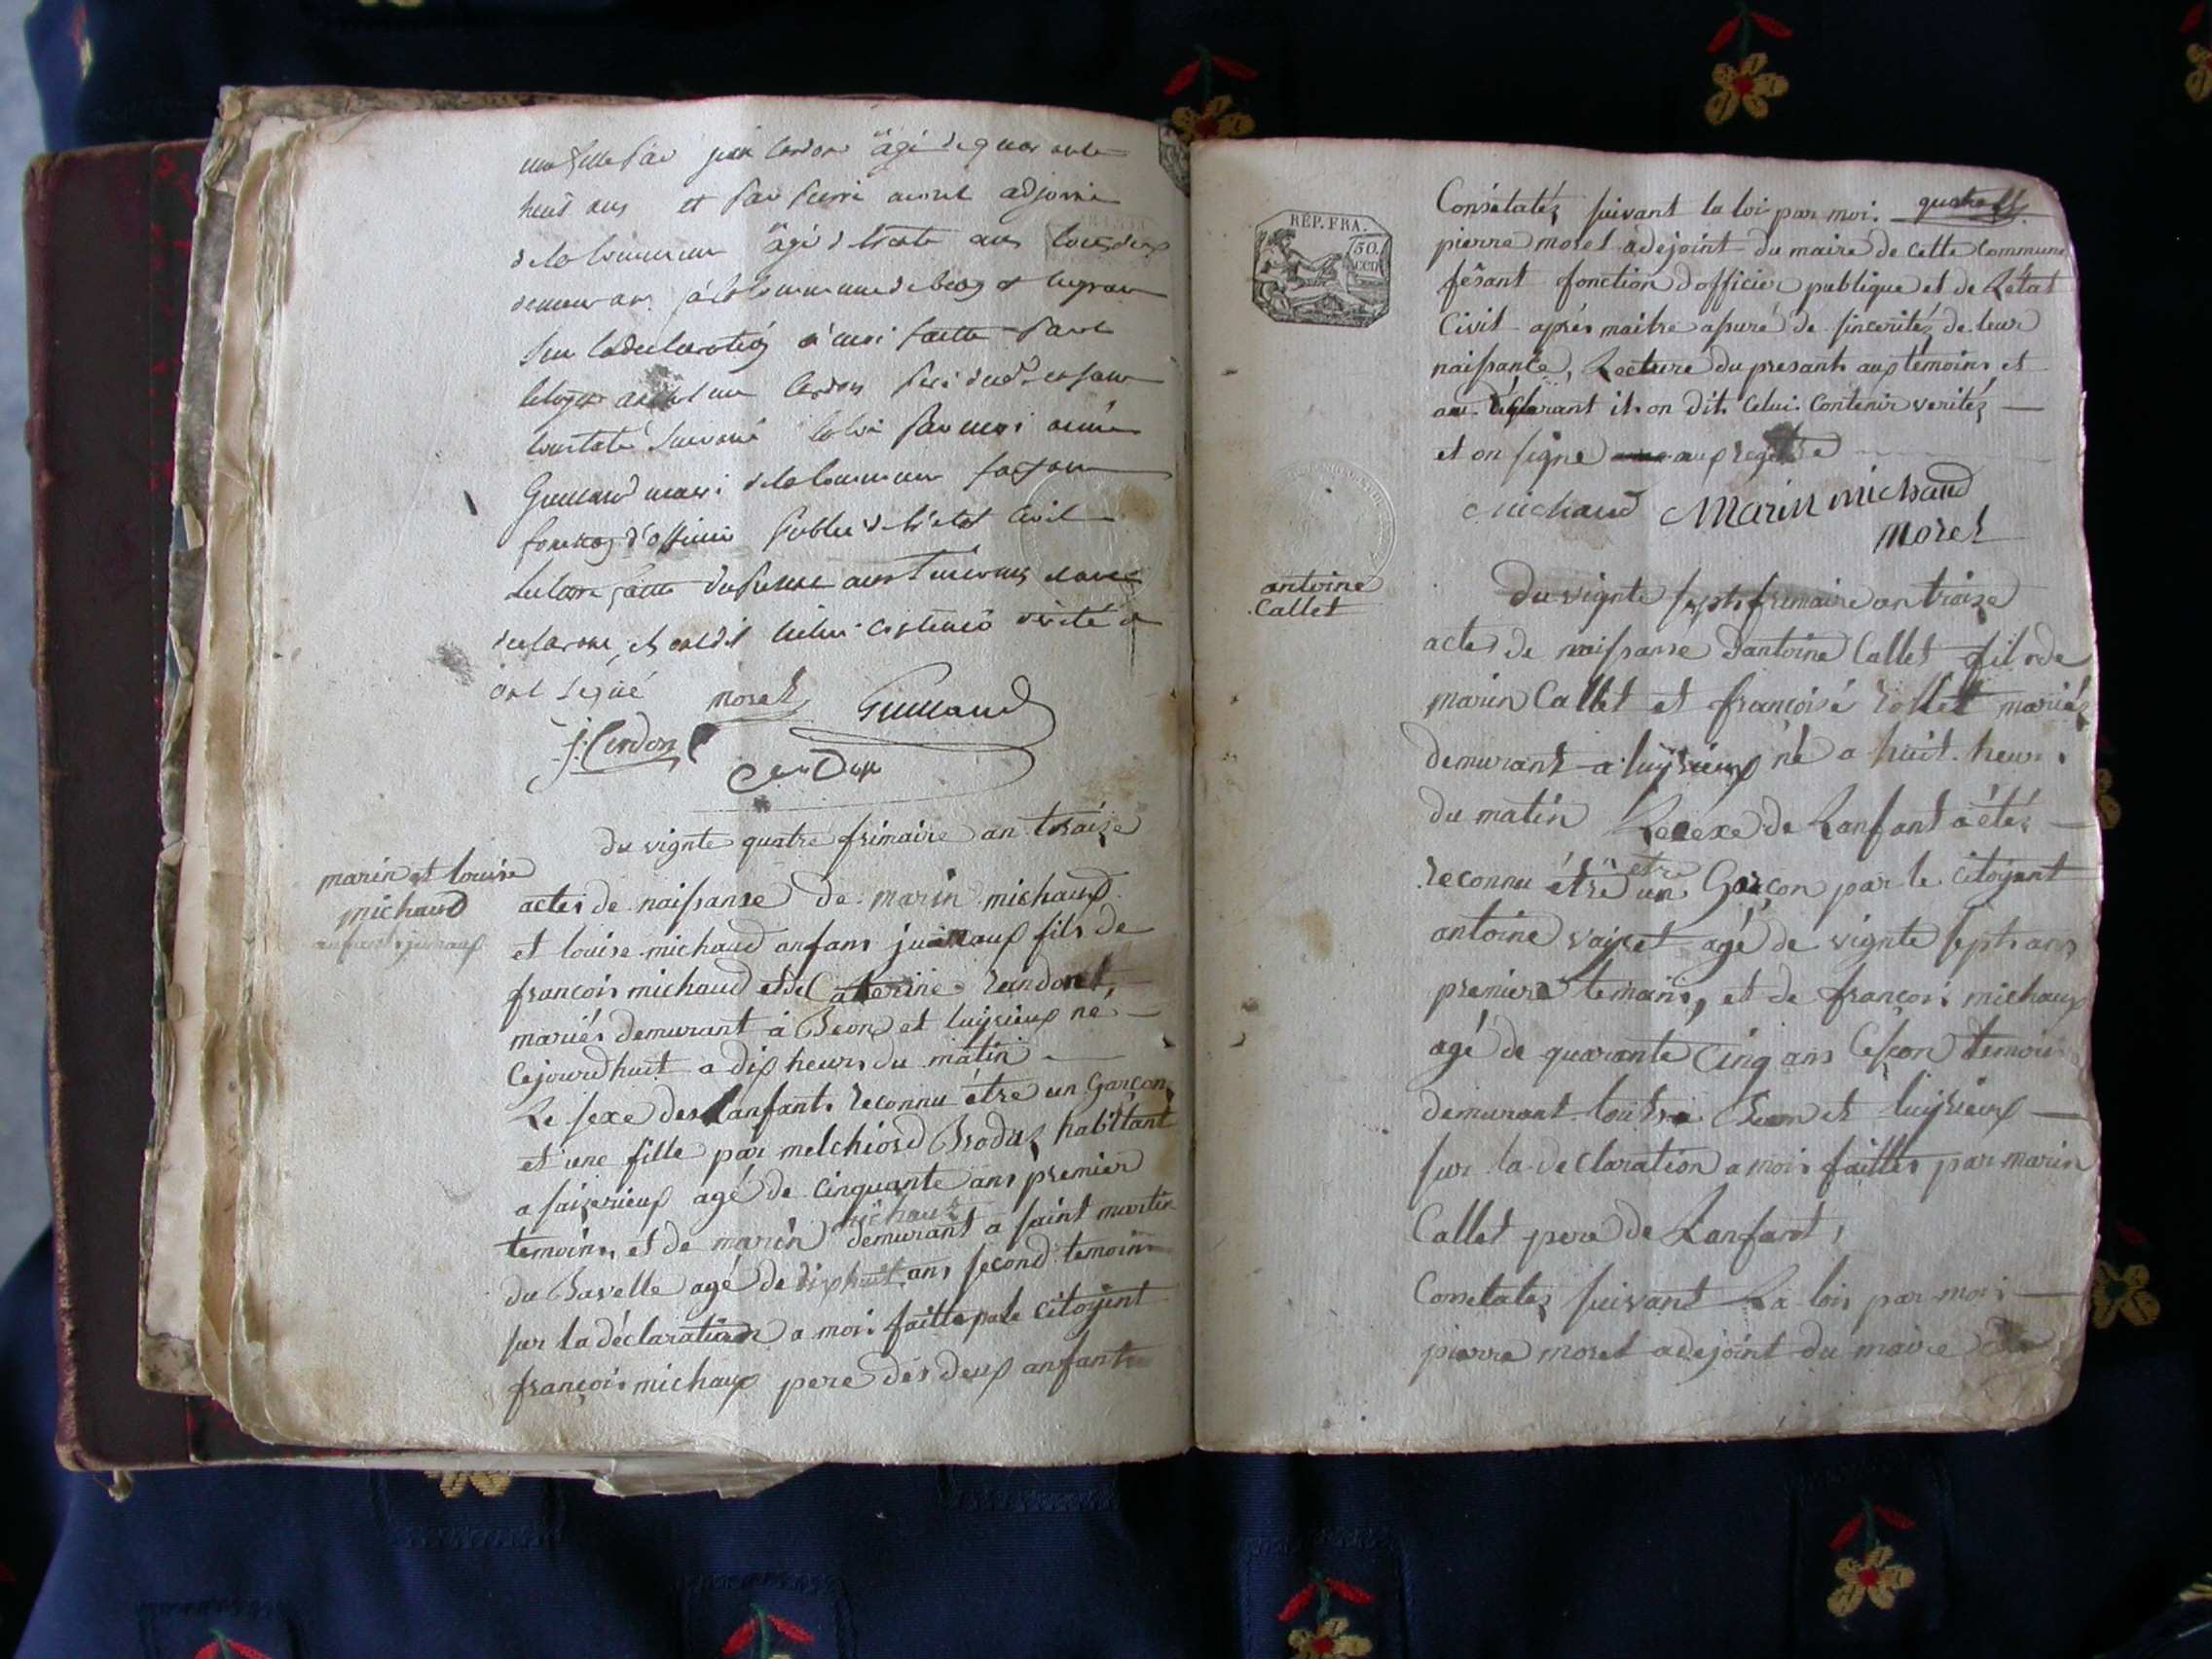 une fille par jean Cerdon âgé de quarante
huit ans et par pierre morel adjoint
de la commune âgé de trente ans tous deux
demeurant à la commune de
sur la déclaration à moi faitte par le
citoyen Cerdon
constaté suivant la loi par moi aimé
Guillaud maire de la commune faisant
fonction d'officier public de l'état civil
Lecture faitte du présent aux témoins et au
déclarant, ils ont dit celui contenir vérité et
ont signé morel Guillaud
j. Cerdon
du vignte quatre frimaire an traize
marin et louise
michaud
anfants jumaux
actes de naissanse de marin michaud
et louise michaud anfans jumaux fils de
francois michaud et de Catterine rendonet,
mariés demurant à Beon et luysieux né
Cejourdhuit a dix heurs du matin
Le sexe des Lanfants reconnu être un Garçon
et une fille par melchiord Brodus habittant
a saiserieux agé de cinquante ans premier
michaux
temoins, et de marin demurant a saint martin
du Bavelle agé de dixhuit ans second temoins
sur la déclaration a moi faitte par le citoyent
françois michaux pere des deux anfants
REP. FRA.
50.
CEN
Consétatéz suivant la loi par moi.
pierre morel adejoint du maire de cette commune
fésant fonction dofficier publique et de Létat
Civil aprés maitre asuré de sincerités de leur
naissance, Lecture du presants aux temoins et
au déglarant ils on dit Celui Contenir verités
et on signe aux regitre
michaud Marin michaud
morel
antoine
Callet
Du vignte sept frimaire an traize
actes de naissanse dantoine Callet fil de
marin Callet et françoisé rollet mariéz
demurant a luysieux né a huit heurs
du matin Le sexe de Lanfant a étéz
etre
reconnu étre un Garçon par le citoyent
antoine agé de vignte sept ans
premiere temains, et de françois michaux
agé de quarante Cinq ans Cescon temoins
demurant touts a Beon et luysieux
sur la declaration a moi faittes par marin
Callet pere de Lanfant,
Consetatez suivant La lois par moi
pierre morel adejoint du maire